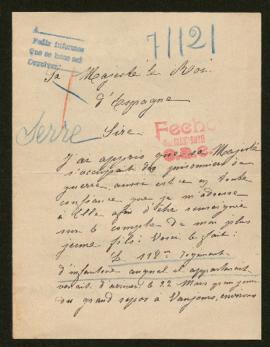 7/1121
Sa Majesté le Roi
d'Espagne
Serre
Sire
Fecho
J'ai appris que sa Majesté
s'occupait des prisonniers de
guerre, aussi est ce en toute
confiance que je m'adresse
à Elle afin d'être renseignée
sur le compte de mon plus
jeune fils: Voici le fait:
Le 112e régiment
d'infanterie auquel il appartenait
venait d'arriver le 22 Mars
du grand repos à environs